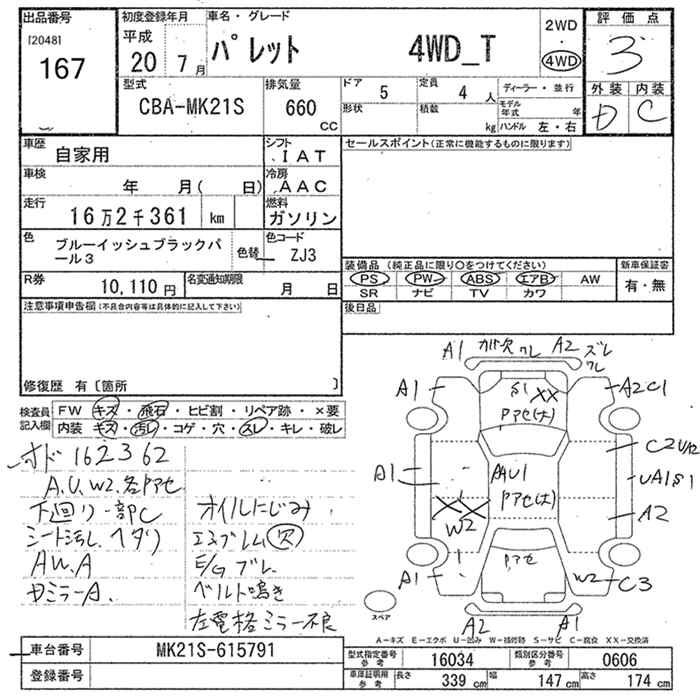 出品番号
[2048]
167
初度登録年月
平成
20 年 7 月
車名・グレード
パレット 4WD_T
2WD
・
4WD
評価点
3
外装 内装
D C
型式
CBA-MK21S
排気量
660 CC
ドア 5
形状
定員 4 人
積数 kg
ディーラー・並行
モデル年式 年
ハンドル 左・右
車歴
自家用
シフト
IAT
車検
年 月( 日)
冷房
AAC
走行
16万2千361 km
燃料
ガソリン
色
ブルーイッシュブラックパール3
色替
色コード
ZJ3
R券
10,110 円
名変通知期限
月 日
セールスポイント(正常に機能するものに限ります)
装備品(純正品に限り○をつけてください)
PS ・ PW ・ ABS ・ エアB ・ AW
SR ナビ TV カワ
新車保証書
有・無
注意事項申告欄(不具合内容等は具体的に記入して下さい)
後日品
修復歴 有〔箇所 〕
検査員記入欄
FW キズ・飛石・ヒビ割・リペア跡・×要
内装 キズ・汚レ・コゲ・穴・スレ・キレ・破レ
オド 162362
A.U.W2.各Pアセ
下回り一部C
シート汚し.ヘタリ
AW.A
Dミラー A.
オイルにじみ
エンブレム欠
E/G ブレ
ベルト鳴き
左電格ミラー不良
A1 ガバ欠 ワレ A2 ズレ ワレ
A1 S1 XX A2C1
Pアセ(大)
C2 U A2
A1 AU1 UA1S1
Pアセ(大)
XX W2 A2
Pアセ
A1 W2 C3
スペア
A2 A1
A―キズ E―エクボ U―凹み W―補修跡 S―サビ C―腐食 XX―交換済
車台番号 MK21S-615791
登録番号
型式指定番号 参考 16034
類別区分番号 参考 0606
車庫証明用 参考 長さ 339 cm 幅 147 cm 高さ 174 cm